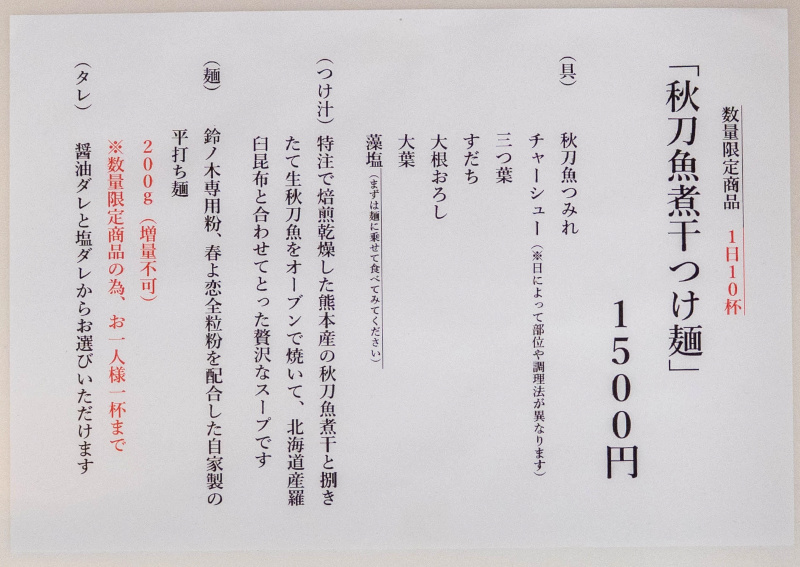 数量限定商品　1日10杯
「秋刀魚煮干つけ麺」
1500円
（具）　秋刀魚つみれ
チャーシュー（※日によって部位や調理法が異なります）
三つ葉
すだち
大根おろし
大葉
藻塩（まずは麺に乗せて食べてみてください）
（つけ汁）特注で焙煎乾燥した熊本産の秋刀魚煮干と捌き
たて生秋刀魚をオーブンで焼いて、北海道産羅
臼昆布と合わせてとった贅沢なスープです
（麺）　鈴ノ木専用粉、春よ恋全粒粉を配合した自家製の
平打ち麺
200g（増量不可）
※数量限定商品の為、お一人様一杯まで
（タレ）　醤油ダレと塩ダレからお選びいただけます